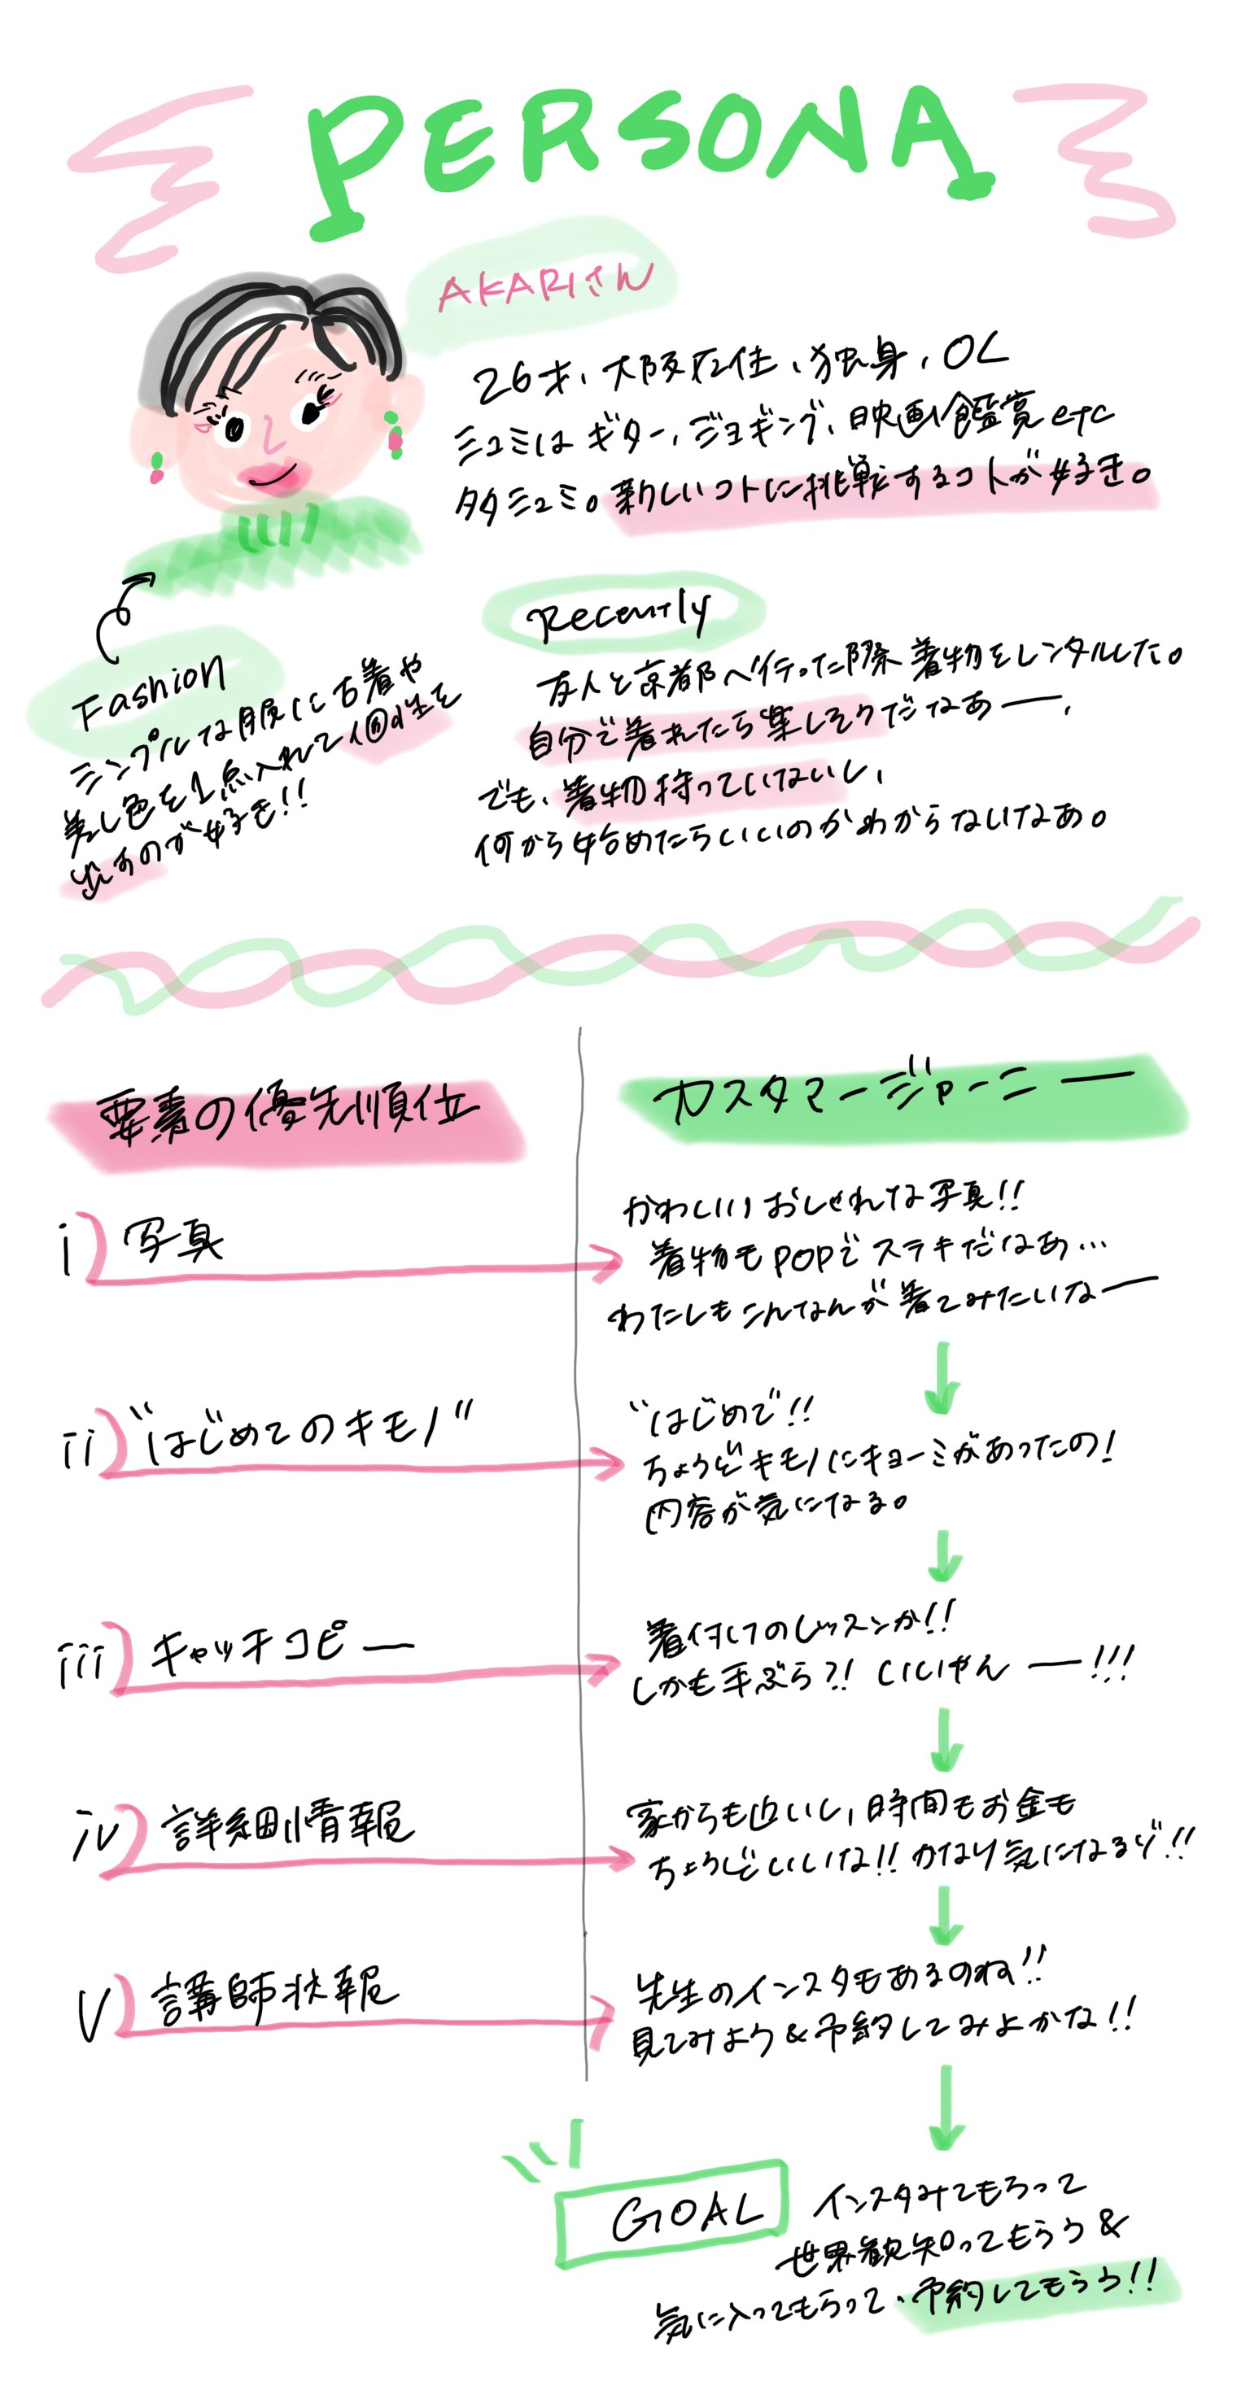 PERSONA
AKARIさん
26才、大阪在住、独身、OL
シュミは ギター、ジョギング、映画鑑賞 etc
多シュミ。新しいコトに挑戦するコトが好き。
Fashion
シンプルな服に古着や
差し色を1点入れて個性を
出すのが好き!!
Recently
友人と京都へ行った際 着物をレンタルした。
自分で着れたら楽しそうだなあー、
でも、着物持っていないし、
何から始めたらいいのかわからないなあ。
要素の優先順位
カスタマージャーニー
i) 写真
かわいいおしゃれな写真!!
着物もPOPでステキだなあ…
わたしもこんなんが着てみたいなー
ii) "はじめてのキモノ"
"はじめて"!!
ちょうどキモノにキョーミがあったの!
内容が気になる。
iii) キャッチコピー
着付けのレッスンか!!
しかも手ぶら?! いいやんー!!!
iv) 詳細情報
家からも近いし、時間もお金も
ちょうどいいな!! かなり気になるゾ!!
v) 講師状報
先生のインスタもあるのね!!
見てみよう & 予約してみよかな!!
GOAL
インスタみてもらって
世界観知ってもらう &
気に入ってもらって、予約してもらう!!